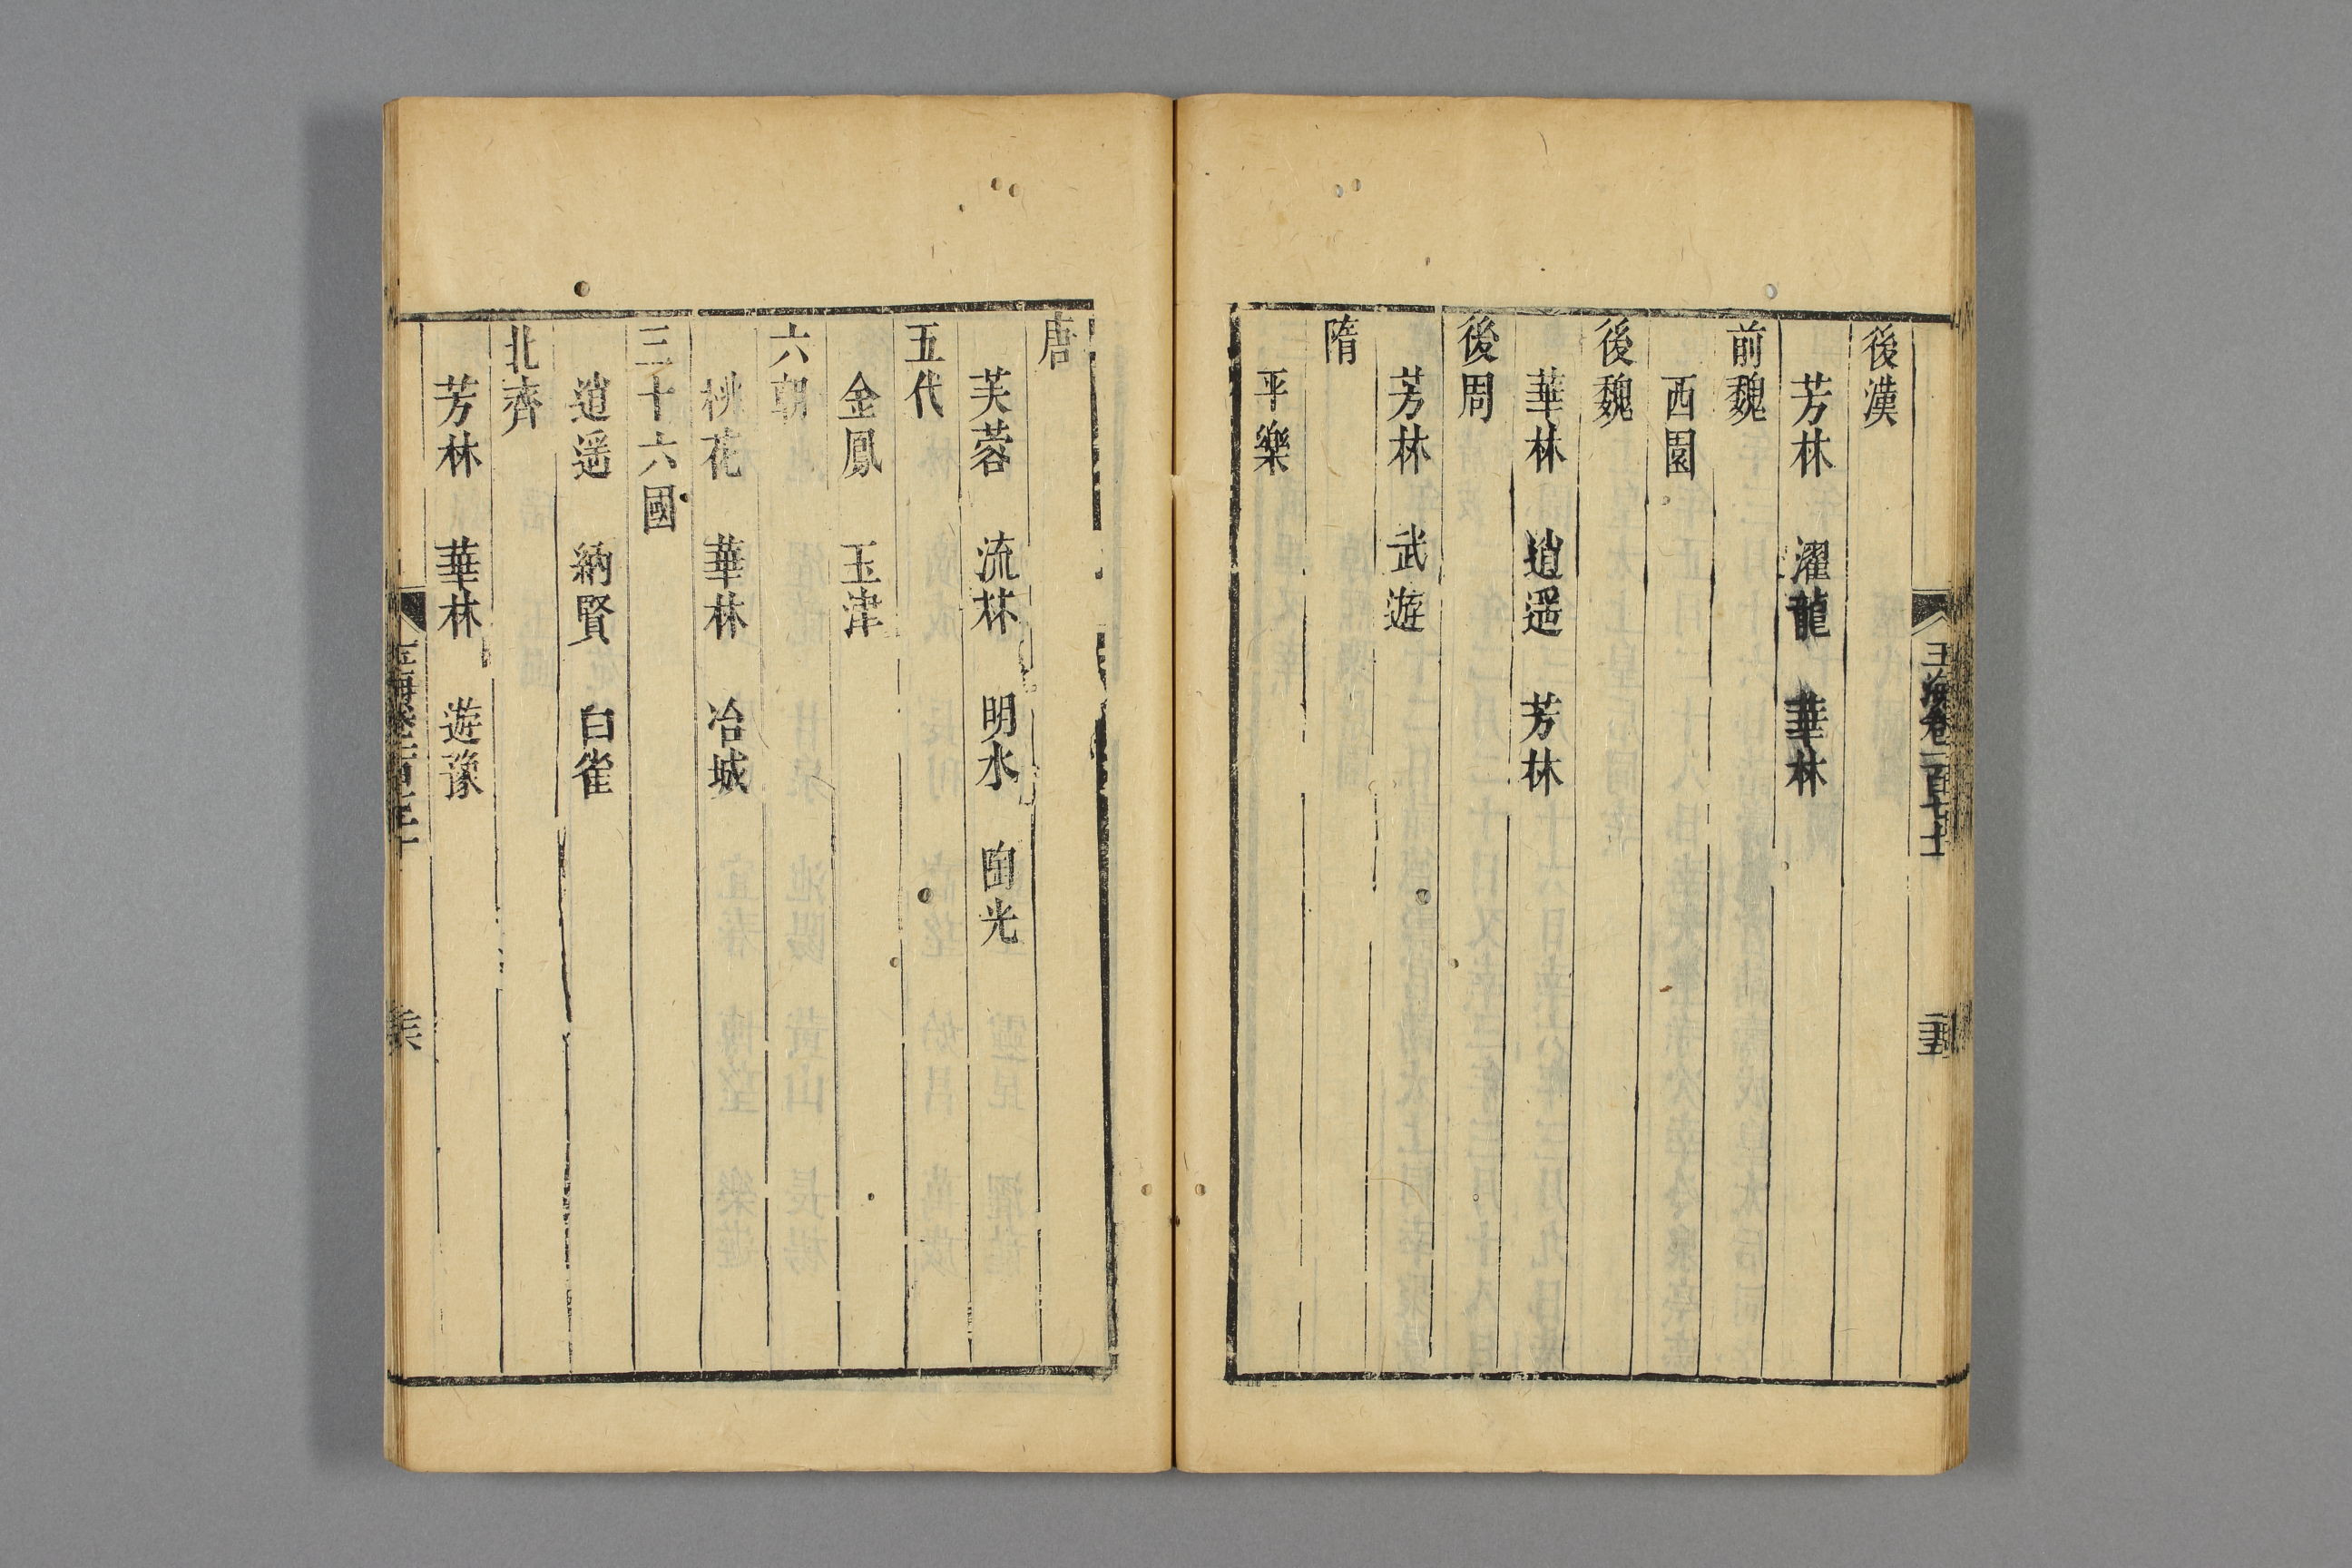 後漢
芳林 濯龍 華林
前魏
西園
後魏
華林 逍遥 芳林
後周
芳林 武遊
隋
平樂
唐
芙蓉 流杯 明水 光
五代
金鳳 玉津
六朝
桃花 華林 冶城
三十六國
逍遥 納賢 白雀
北齊
芳林 華林 遊豫
玉海卷一百七十一